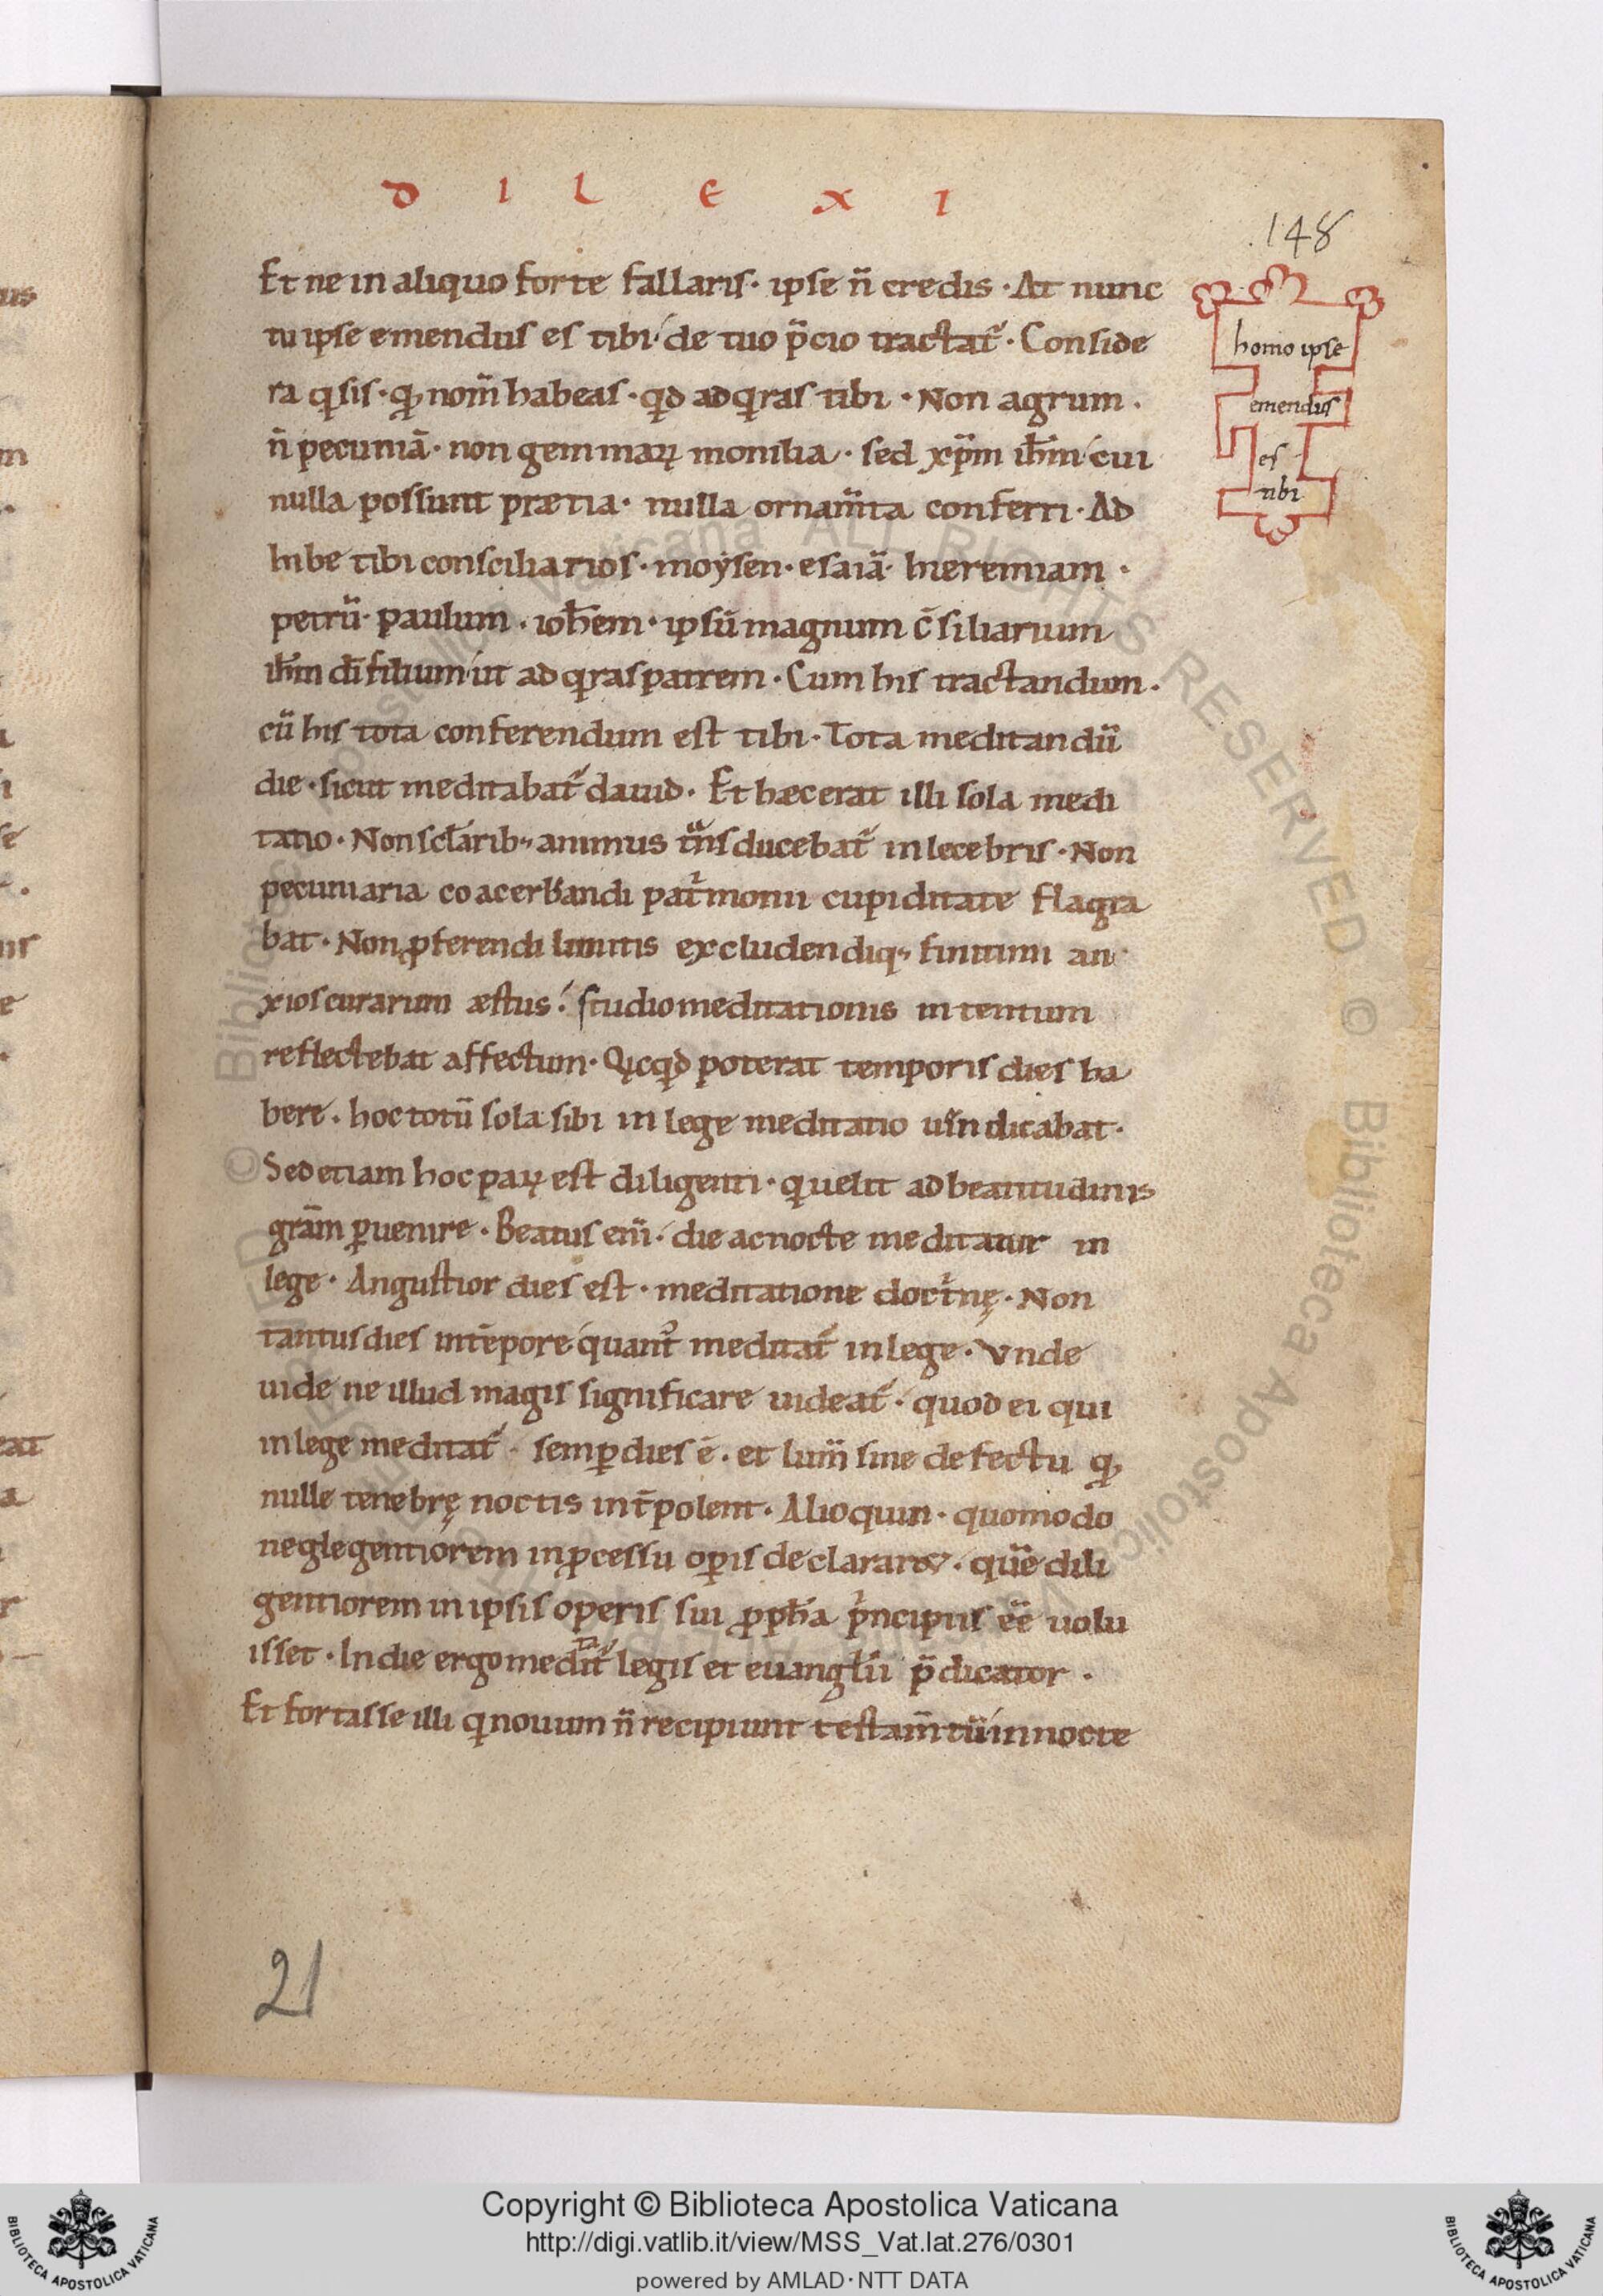 D I L E X I
.148
Et ne in aliquo forte fallaris· ipse n̄ credis· At nunc
tu ipse emendus es tibi· de tuo p̄cio tractat᷑· Conside
ra qͥ sis· qͥ nom̄ habeas· qͥd adqͥras tibi· Non agrum·
n̄ pecuniā· non gemmaꝝ monilia· sed xp̄m ih̄m cui
nulla possunt prætia· nulla ornam̄ta conferri· Ad
hibe tibi consciliarios· moẏsen· esaiā· hieremiam·
petrū· paulum· ioh̄em· ipsū magnum c̄siliarium
ih̄m dī filium ut adqͥras patrem· Cum his tractandum·
cū his tota conferendum est tibi· Tota meditandū
die· sicut meditabat᷑ dauid· Et hæc erat illi sola medi
tatio· Non sc̄larib; animus t̄nsducebat᷑ inlecebris· Non
pecuniaria coacerbandi pat̓monii cupiditate flagra
bat· Non ꝓferendi limitis excludendiq; finitimi an
xios curarum æstus· studio meditationis intentum
reflectebat affectum· Qͥcqͥd poterat temporis dies ha
bere· hoc totū sola sibi in lege meditatio uīndicabat·
Sed etiam hoc paꝝ est diligenti· qͥ uelit ad beatitudinis
grām ꝑuenire· Beatus enī· die ac nocte meditatur in
lege· Angustior dies est· meditatione doct̓nę· Non
tantus dies in tēpore quant᷒ meditat᷑ in lege· Vnde
uide ne illud magis significare uideat᷑· quod ei qui
in lege meditat᷑· semꝑ dies ē· et lum̄ sine defectu qͥ
nulle tenebrę noctis int̄polent· Alioquin· quomodo
neglegentiorem in ꝓcessu oꝑis declararet· quē dili
gentiorem in ipsis operis sui ꝓph̄a p̓ncipiis eē uolu
isset· In die ergo medit᷑ legis et euangl̄ii p̄dicator·
Et fortasse illi qͥ nouum n̄ recipiunt testam̄tū in nocte
homo ipse
emendus
es
tibi
21
Copyright © Biblioteca Apostolica Vaticana
http://digi.vatlib.it/view/MSS_Vat.lat.276/0301
powered by AMLAD·NTT DATA
BIBLIOTECA APOSTOLICA VATICANA
BIBLIOTECA APOSTOLICA VATICANA